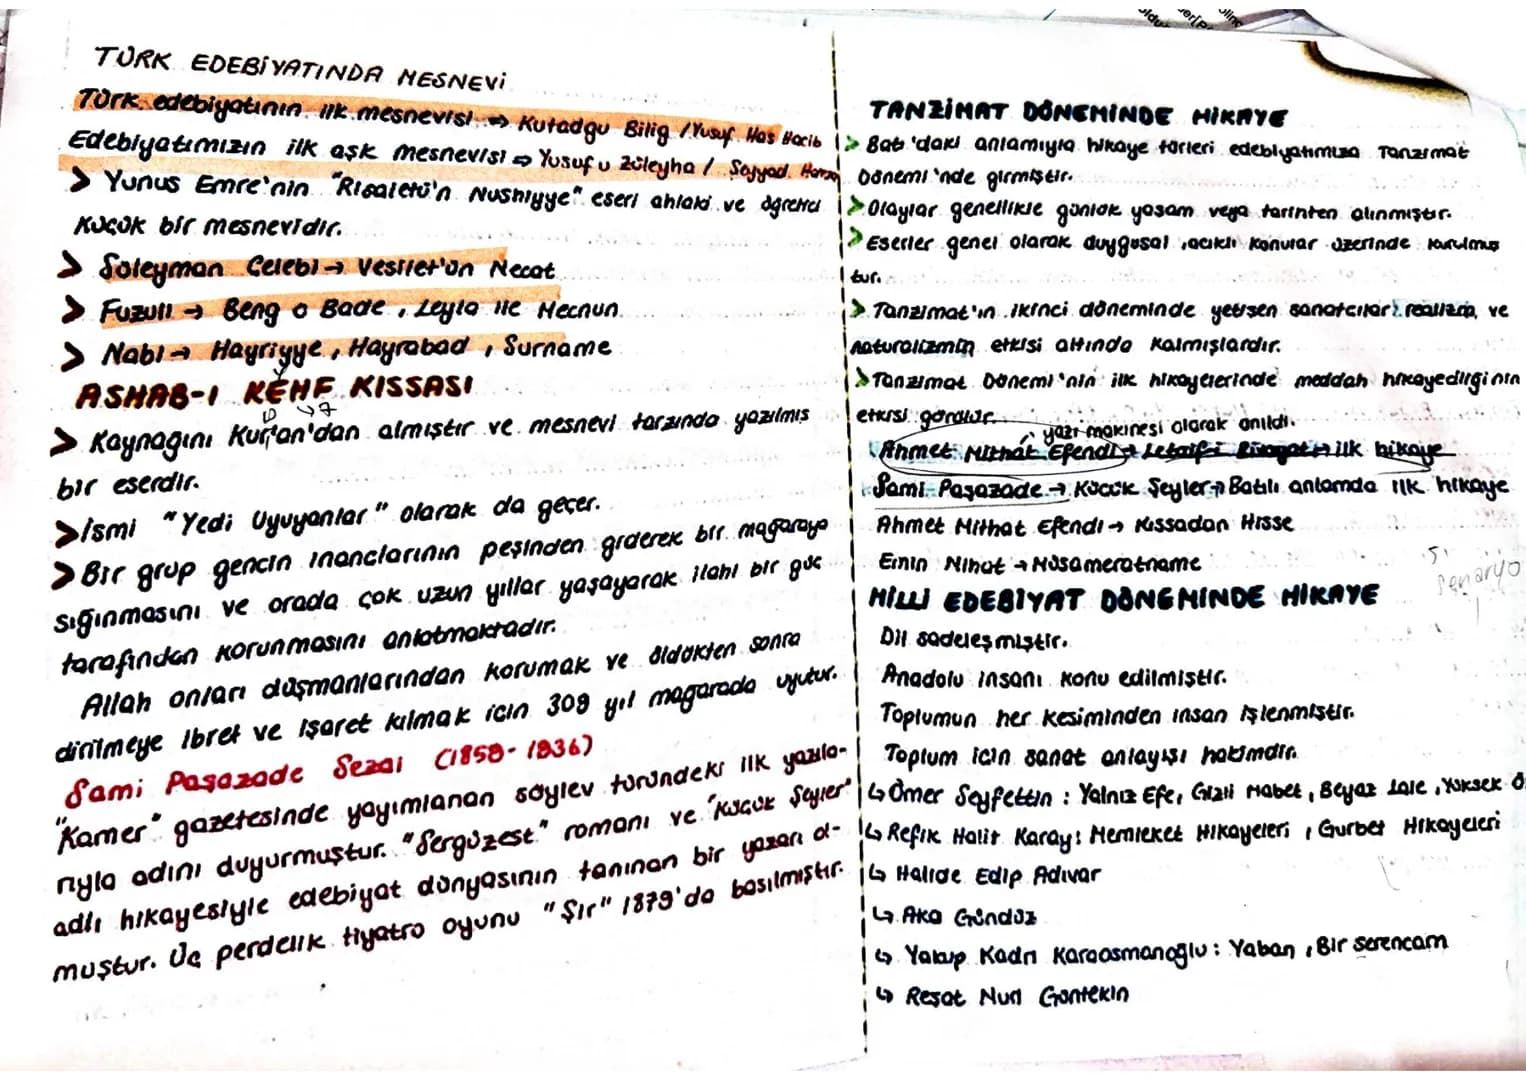 TÜRK EDEBİYATINDA MESNEVİ
Türk edebiyatının ilk mesnevisi → Kutadgu Bilig / Yusuf Has Hacib
Edebiyatımızın ilk aşk mesnevisi → Yusuf u Züleyha / Şeyyad Hamza
> Yunus Emre'nin "Risaletü'n Nushiyye" eseri ahlaki ve öğretici
küçük bir mesnevidir.
> Süleyman Çelebi → Vesilet'ün Necat
> Fuzuli → Beng ü Bade, Leyla ile Mecnun
> Nabi → Hayriyye, Hayrabad, Surname
ASHAB-I KEHF KISSASI
> Kaynağını Kur'an'dan almıştır ve mesnevi tarzında yazılmış
bir eserdir.
> İsmi "Yedi Uyuyanlar" olarak da geçer.
> Bir grup gencin inançlarının peşinden giderek bir mağaraya
sığınmasını ve orada çok uzun yıllar yaşayarak ilahi bir güç
tarafından korunmasını anlatmaktadır.
Allah onları düşmanlarından korumak ve öldükten sonra
dirilmeye ibret ve işaret kılmak için 309 yıl mağarada uyutur.
Sami Paşazade Sezai (1858-1936)
"Kamer" gazetesinde yayımlanan söylev türündeki ilk yazıla-
rıyla adını duyurmuştur. "Sergüzeşt" romanı ve "Küçük Şeyler"
adlı hikayesiyle edebiyat dünyasının tanınan bir yazarı ol-
muştur. Üç perdelik tiyatro oyunu "Şir" 1879'da basılmıştır.
TANZİMAT DÖNEMİNDE HİKAYE
> Batı'daki anlamıyla hikaye türleri edebiyatımıza Tanzimat
Dönemi'nde girmiştir.
> Olaylar genellikle günlük yaşam veya tarihten alınmıştır.
> Eserler genel olarak duygusal, acıklı konular üzerinde kurulmuş
tur.
> Tanzimat'ın ikinci döneminde yetişen sanatçılar realizm ve
naturalizmin etkisi altında kalmışlardır.
> Tanzimat Dönemi'nin ilk hikayelerinde meddah hikayeciliğinin
etkisi görülür.
yazı makinesi olarak anıldı.
Ahmet Mithat Efendi → Letaif-i Rivayat → ilk hikaye
Sami Paşazade → Küçük Şeyler → Batılı anlamda ilk hikaye
Ahmet Mithat Efendi → Kıssadan Hisse
Emin Nihat → Müsameratname
senaryo
MİLLİ EDEBİYAT DÖNEMİNDE HİKAYE
Dil sadeleşmiştir.
Anadolu insanı konu edilmiştir.
Toplumun her kesiminden insan işlenmiştir.
Toplum için sanat anlayışı hakimdir.
↳ Ömer Seyfettin : Yalnız Efe, Gizli Mabet, Beyaz Lale, Yüksek Ö
↳ Refik Halit Karay: Memleket Hikayeleri, Gurbet Hikayeleri
↳ Halide Edip Adıvar
↳ Aka Gündüz
↳ Yakup Kadri Karaosmanoğlu : Yaban, Bir Serencam
↳ Reşat Nuri Güntekin